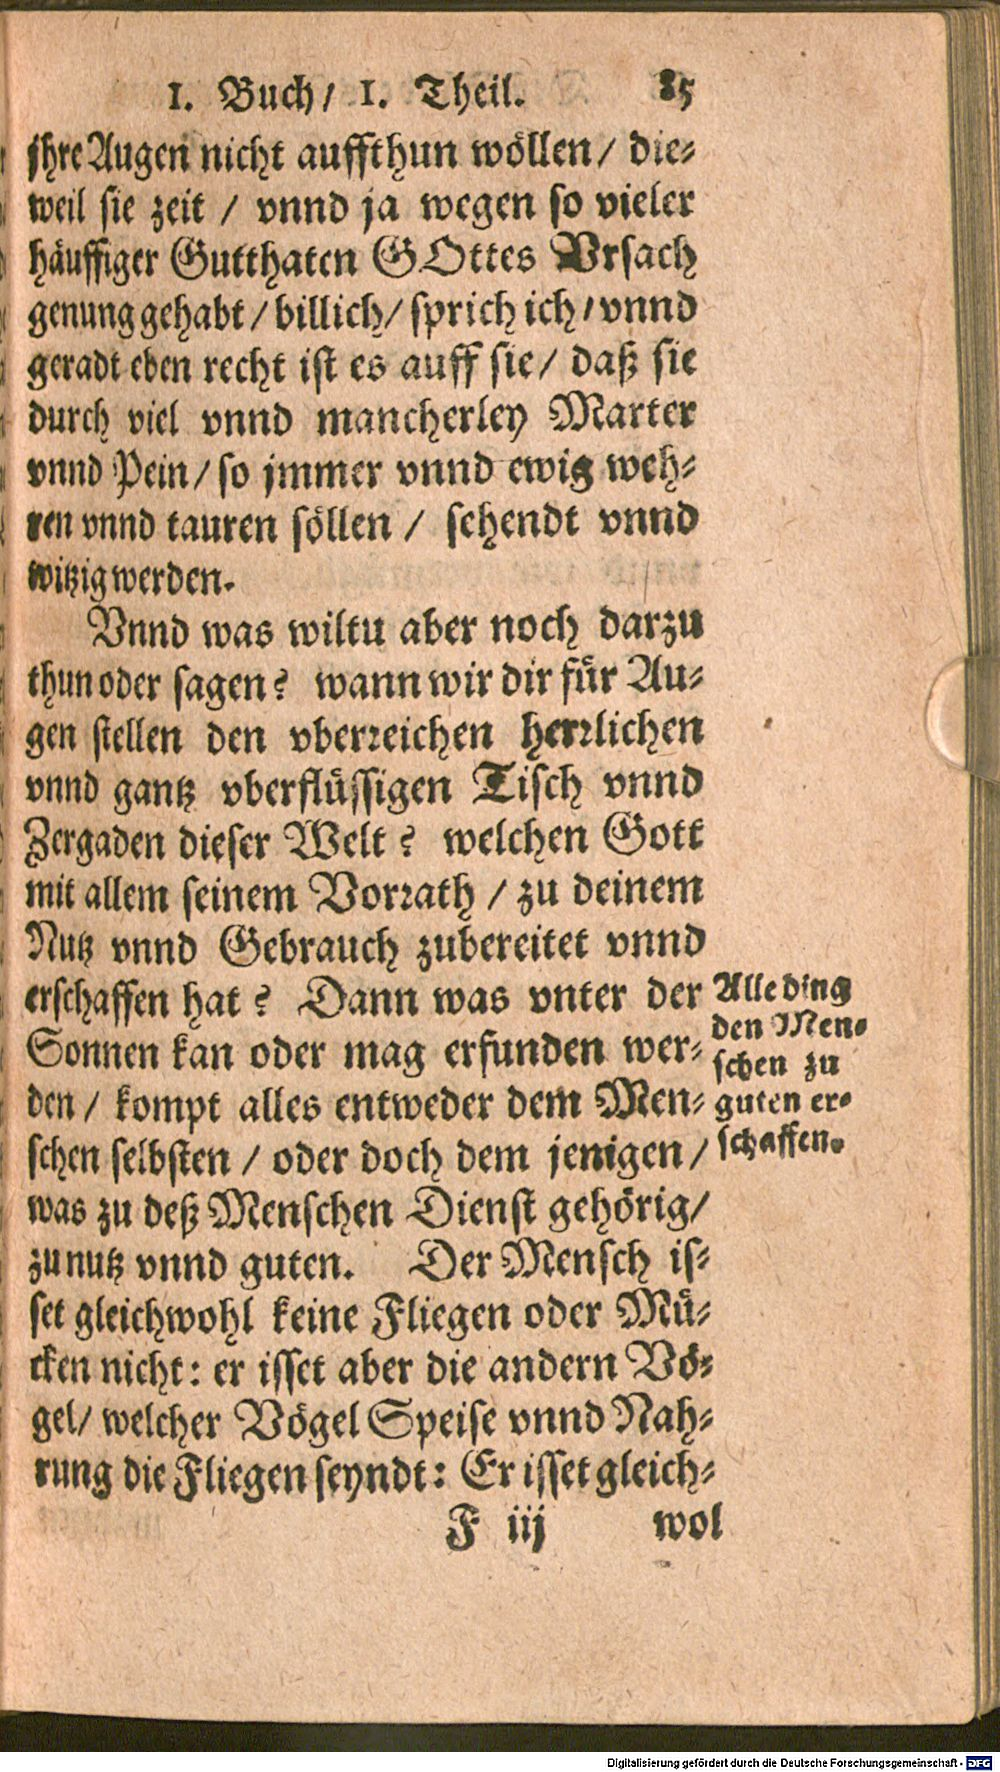 1. Buch/ 1. Theil. 85
jhre Augen nicht auffthun wöllen/ die-
weil sie zeit / vnnd ja wegen so vieler
häuffiger Gutthaten GOttes Vrsach
genung gehabt / billich/ sprich ich/ vnnd
geradt eben recht ist es auff sie/ daß sie
durch viel vnnd mancherley Marter
vnnd Pein/ so jmmer vnnd ewig weh-
ren vnnd tauren söllen / sehendt vnnd
witzig werden.
Vnnd was wiltu aber noch darzu
thun oder sagen? wann wir dir für Au-
gen stellen den vberreichen herrlichen
vnnd gantz vberflüssigen Tisch vnnd
Zergaden dieser Welt? welchen Gott
mit allem seinem Vorrath / zu deinem
Nutz vnnd Gebrauch zubereitet vnnd
erschaffen hat? Dann was vnter der
Sonnen kan oder mag erfunden wer-
den / kompt alles entweder dem Men-
schen selbsten / oder doch dem jenigen /
was zu deß Menschen Dienst gehörig/
zu nutz vnnd guten. Der Mensch is-
set gleichwohl keine Fliegen oder Mü-
cken nicht: er isset aber die andern Vö-
gel/ welcher Vögel Speise vnnd Nah-
rung die Fliegen seyndt: Er isset gleich-
F iij wol
Alle ding
den Men-
schen zu
guten er-
schaffen.
Digitalisierung gefördert durch die Deutsche Forschungsgemeinschaft - DFG